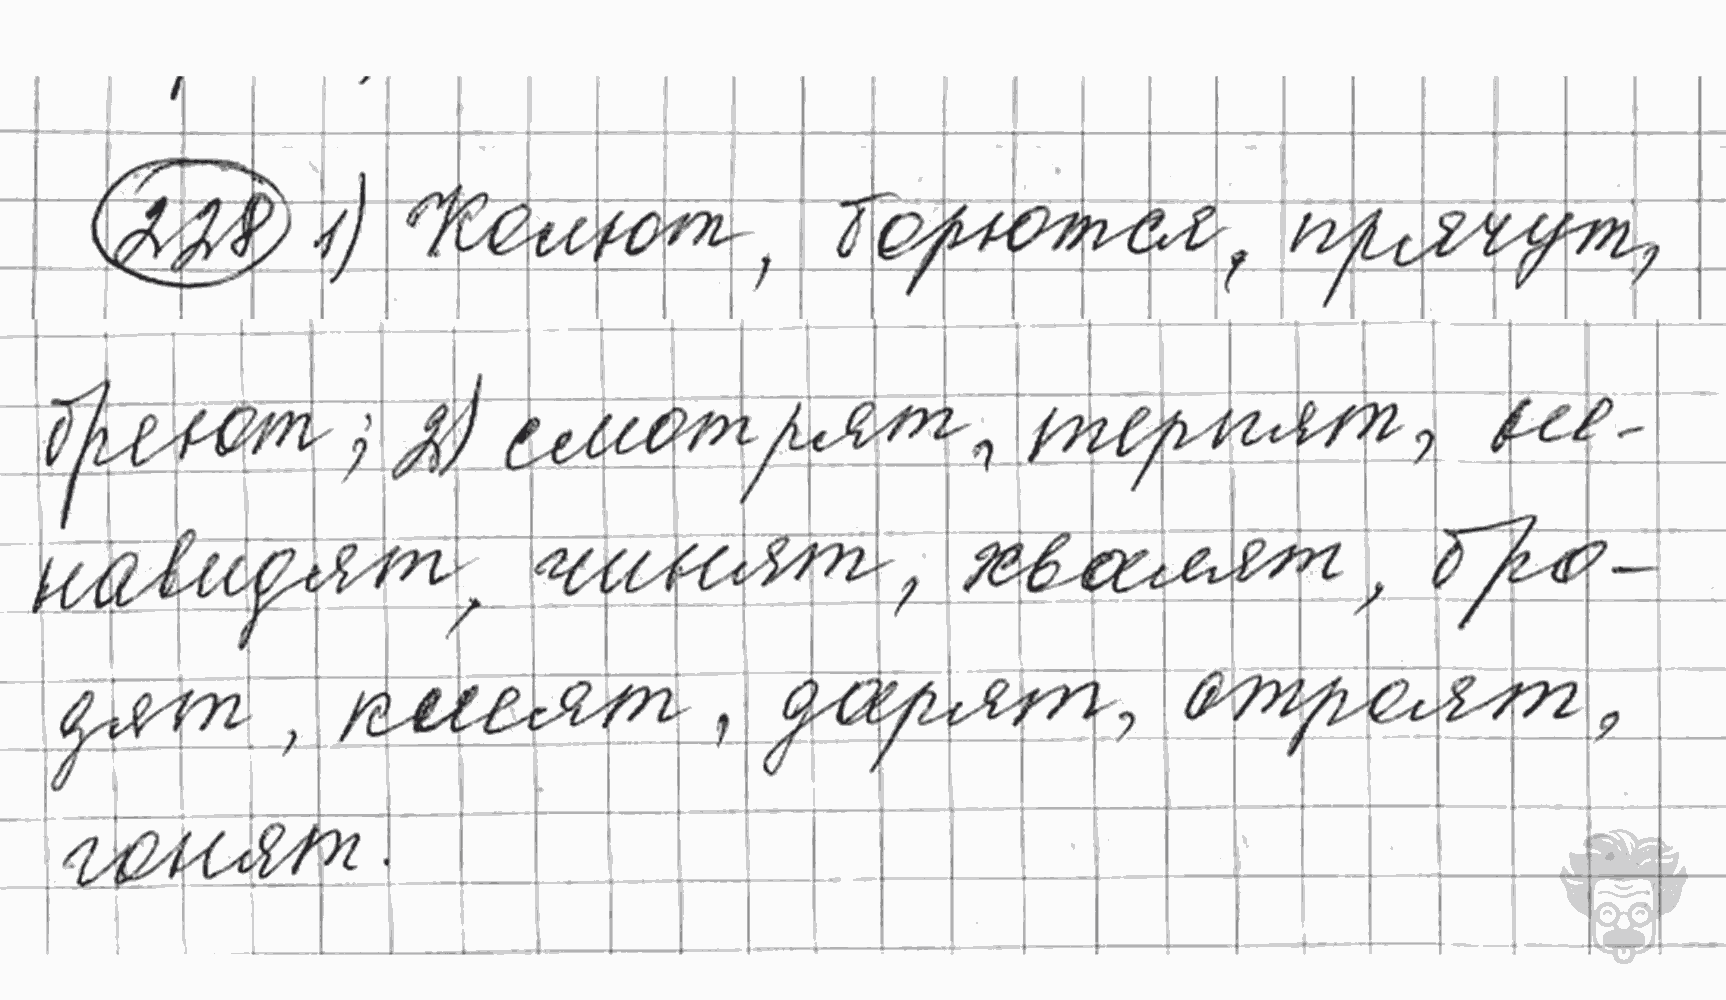 228 1) Колют, борются, прячут,
бреют; 2) смотрят, терпят, не-
навидят, чинят, хвалят, бро-
дят, клеят, дарят, строят,
гонят.